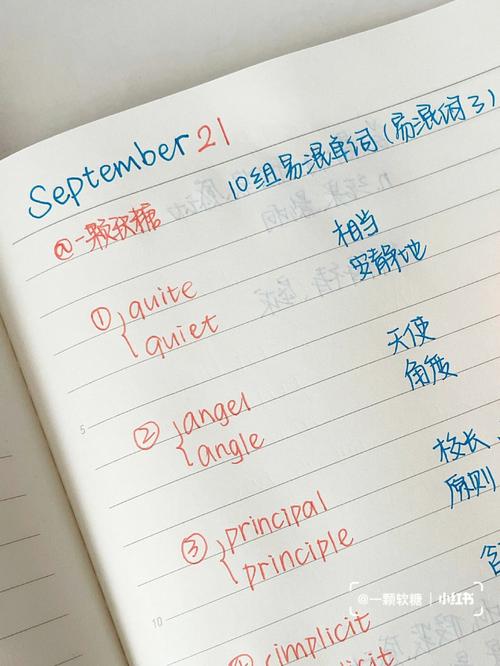 September 21
10组易混单词(易混词3)
@一颗软糖
① quite 相当
quiet 安静地
② angel 天使
angle 角度
5
③ principal 校长、
principle 原则
10
simplicit
@一颗软糖 | 小红书